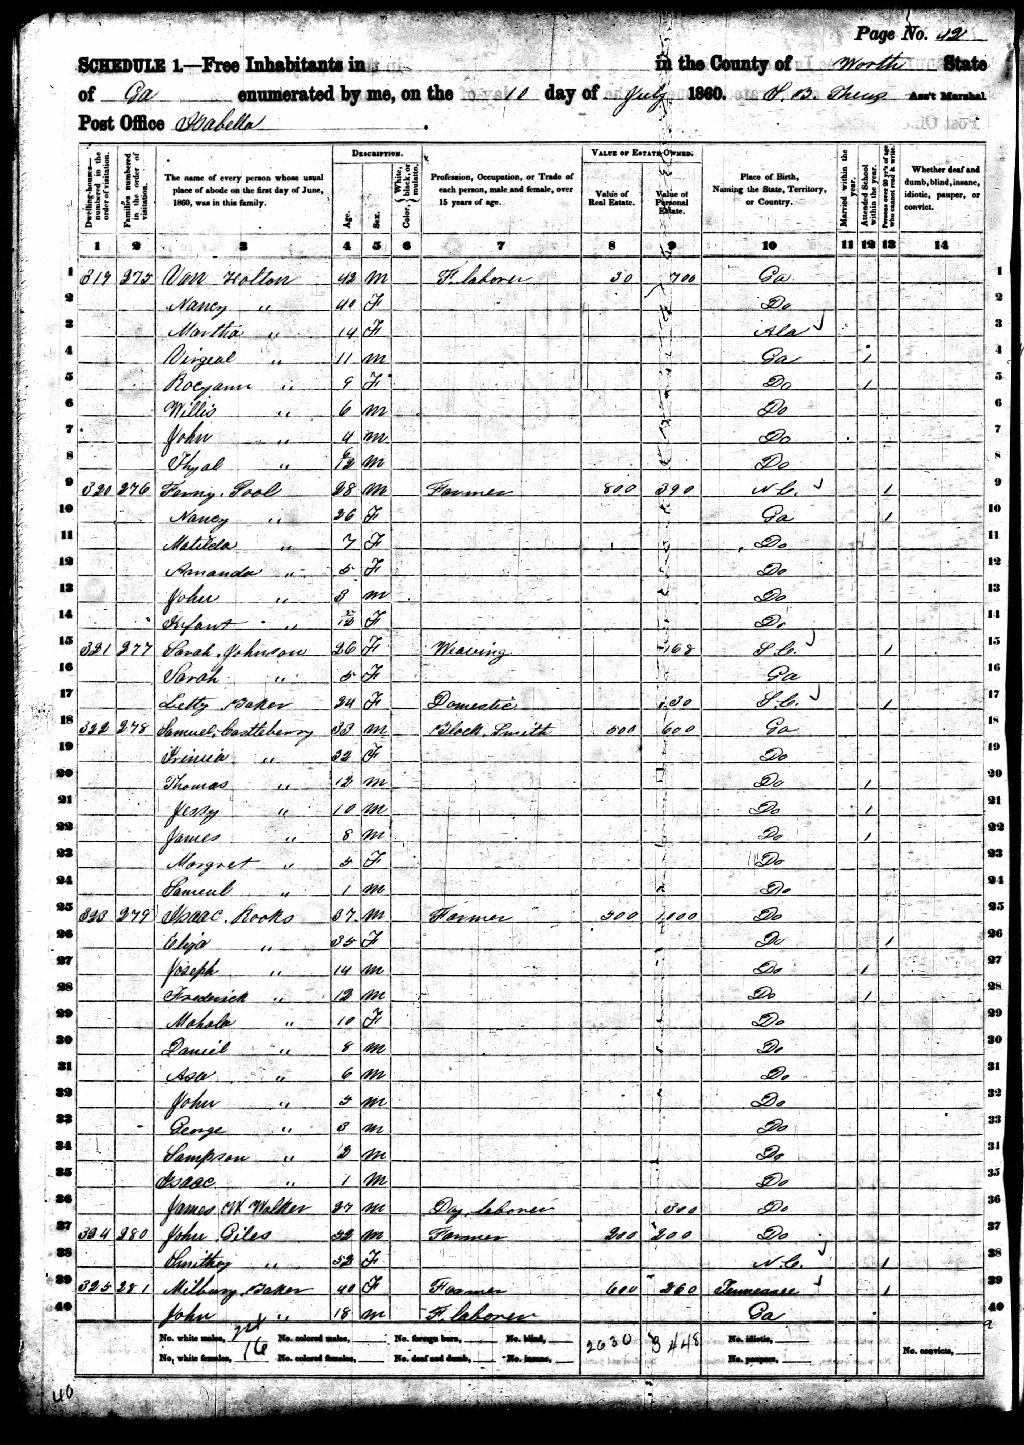 Page No. 42
SCHEDULE 1.—Free Inhabitants in in the County of Worth State
of Ga enumerated by me, on the 10 day of July 1860. Ass't Marshal
Post Office Isabella
DESCRIPTION. VALUE OF ESTATE OWNED.
Dwelling-houses—numbered in the order of visitation. Families numbered in the order of visitation. The name of every person whose usual place of abode on the first day of June, 1860, was in this family. Age. Sex. Color, White, black, or mulatto. Profession, Occupation, or Trade of each person, male and female, over 15 years of age. Value of Real Estate. Value of Personal Estate. Place of Birth, Naming the State, Territory, or Country. Married within the year. Attended School within the year. Persons over 20 y'rs of age who cannot read & write. Whether deaf and dumb, blind, insane, idiotic, pauper, or convict.
1 2 3 4 5 6 7 8 9 10 11 12 13 14
1 319 275 Van Holton 42 M F. laborer 30 700 Ga 1
2 Nancy " 40 F Do 2
3 Martha " 14 F Ala 3
4 Virgeal " 11 M Ga 1 4
5 Rocyann " 9 F Do 1 5
6 Willis " 6 M Do 6
7 John " 4 M Do 7
8 Thyal " M Do 8
9 320 276 Pool 28 M Farmer 800 390 N.C. 1 9
10 Nancy " 26 F Ga 1 10
11 Matilda " 7 F Do 11
12 Amanda " 5 F Do 12
13 John " 3 M Do 13
14 Infant " F Do 14
15 321 277 Sarah Johnson 26 F Weaving 168 S.C. 1 15
16 Sarah " 5 F Ga 16
17 Letty Baker 24 F Domestic 30 S.C. 1 17
18 322 278 Samuel Castleberry 33 M Black Smith 500 600 Ga 18
19 " 32 F Do 19
20 Thomas " 12 M Do 1 20
21 Jessy " 10 M Do 1 21
22 James " 8 M Do 1 22
23 Margret " 5 F Do 23
24 Samuel " 1 M Do 24
25 323 279 Isaac Rooks 37 M Farmer 500 1000 Do 25
26 Eliza " 35 F Do 1 26
27 Joseph " 14 M Do 1 27
28 Frederick " 12 M Do 1 28
29 Mahala " 10 F Do 29
30 Daniel " 8 M Do 30
31 Asa " 6 M Do 31
32 John " 5 M Do 32
33 George " 3 M Do 33
34 Sampson " 2 M Do 34
35 Isaac " 1 M Do 35
36 James W Walker 27 M Day laborer 300 Do 36
37 324 280 John Giles 52 M Farmer 200 200 Do 37
38 Smithy " 52 F N.C. 1 38
39 325 281 Milbury Baker 40 F Farmer 600 260 Tennessee 1 39
40 John " 18 M F. laborer Ga 40
No. white males, 24 No. colored males, No. foreign born, No. blind, 2630 3448 No. idiotic,
No. white females, 16 No. colored females, No. deaf and dumb, No. insane, No. paupers, No. convicts,
40